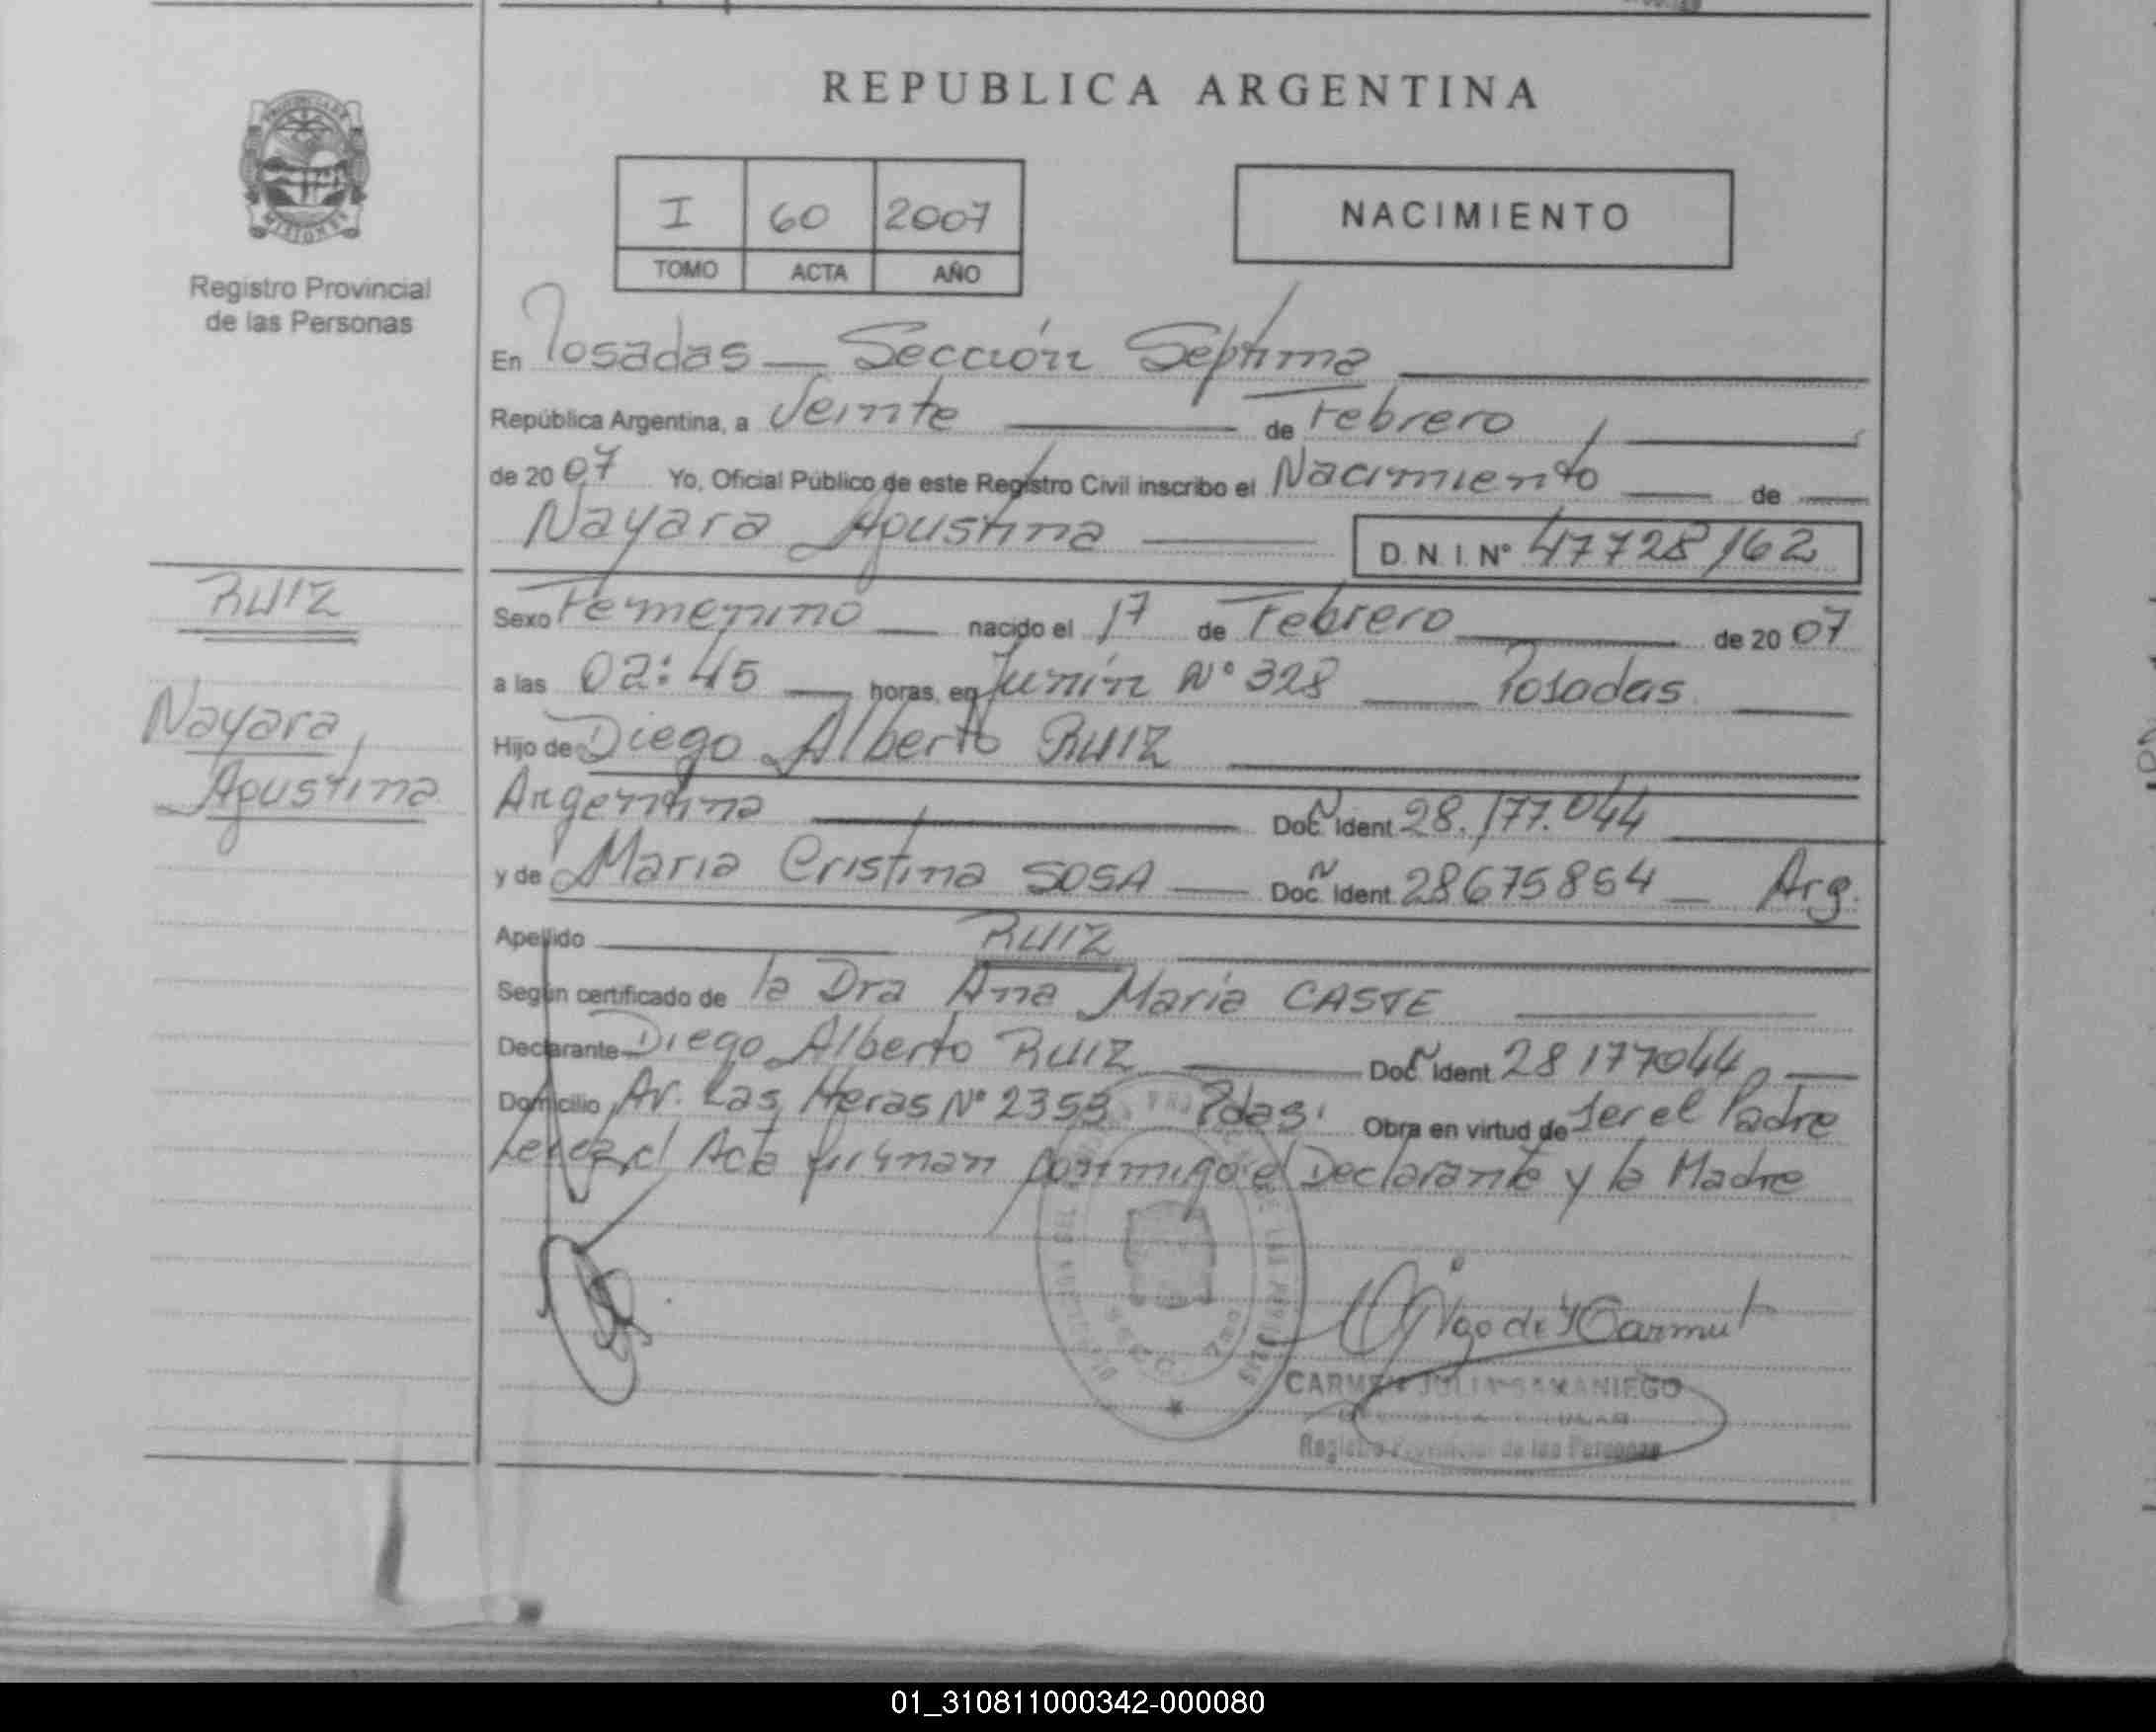 REPUBLICA ARGENTINA
PROVINCIA DE
MISIONES
Registro Provincial
de las Personas
I 60 2007
TOMO ACTA AÑO
NACIMIENTO
En Posadas — Sección Séptima
República Argentina, a Veinte de Febrero
de 2007 Yo, Oficial Público de este Registro Civil inscribo el Nacimiento de
Nayara Agustina
D.N.I. Nº 47728162
RUIZ
Nayara,
Agustina
Sexo Femenino nacido el 17 de Febrero de 2007
a las 02:45 horas, en Junín Nº 328 Posadas
Hijo de Diego Alberto RUIZ
Argentina Doc. Ident. 28.177.044
y de Maria Cristina SOSA Doc. Ident. 28675854 Arg.
Apellido RUIZ
Según certificado de la Dra Ana Maria CASTE
Declarante Diego Alberto RUIZ Doc. Ident. 28177044
Domicilio Av. Las Heras Nº 2353 Pdas. Obra en virtud de ser el Padre
el Acta firman conmigo el Declarante y la Madre
CARMEN JULIA SAMANIEGO
Registro Provincial de las Personas
01_310811000342-000080